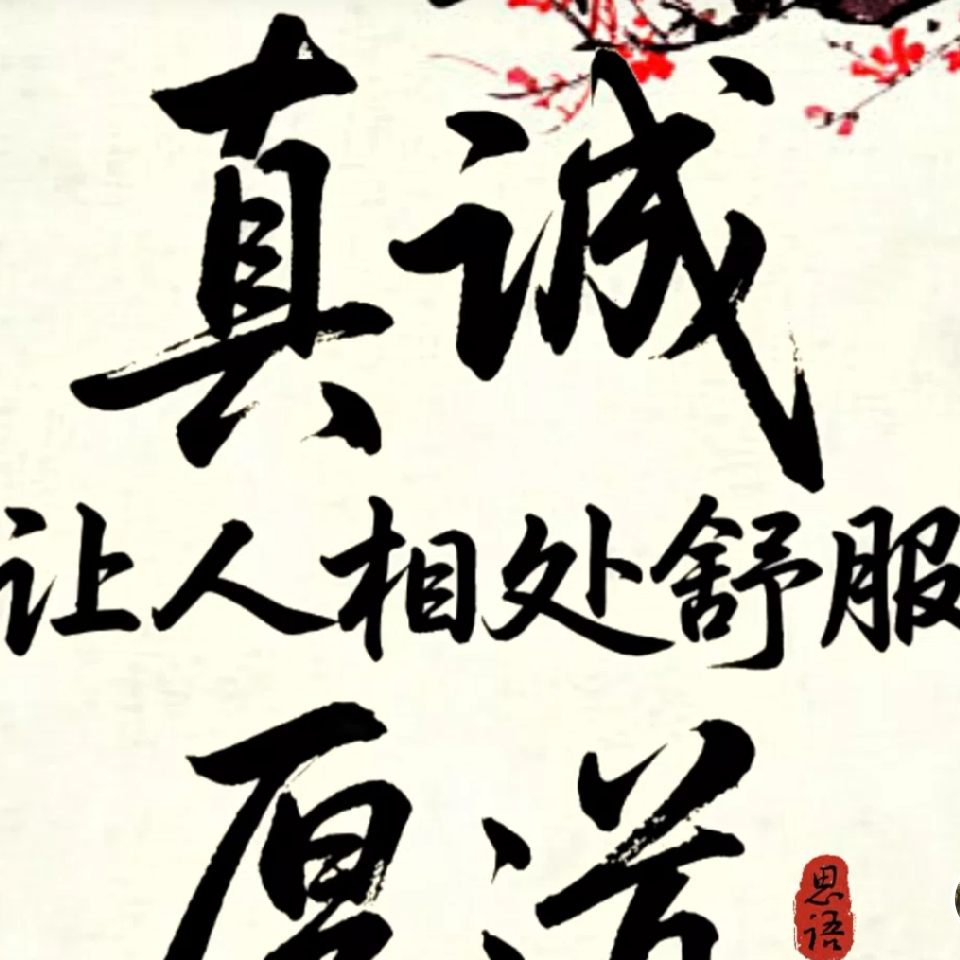 真诚
让人相处舒服
厚道
思语